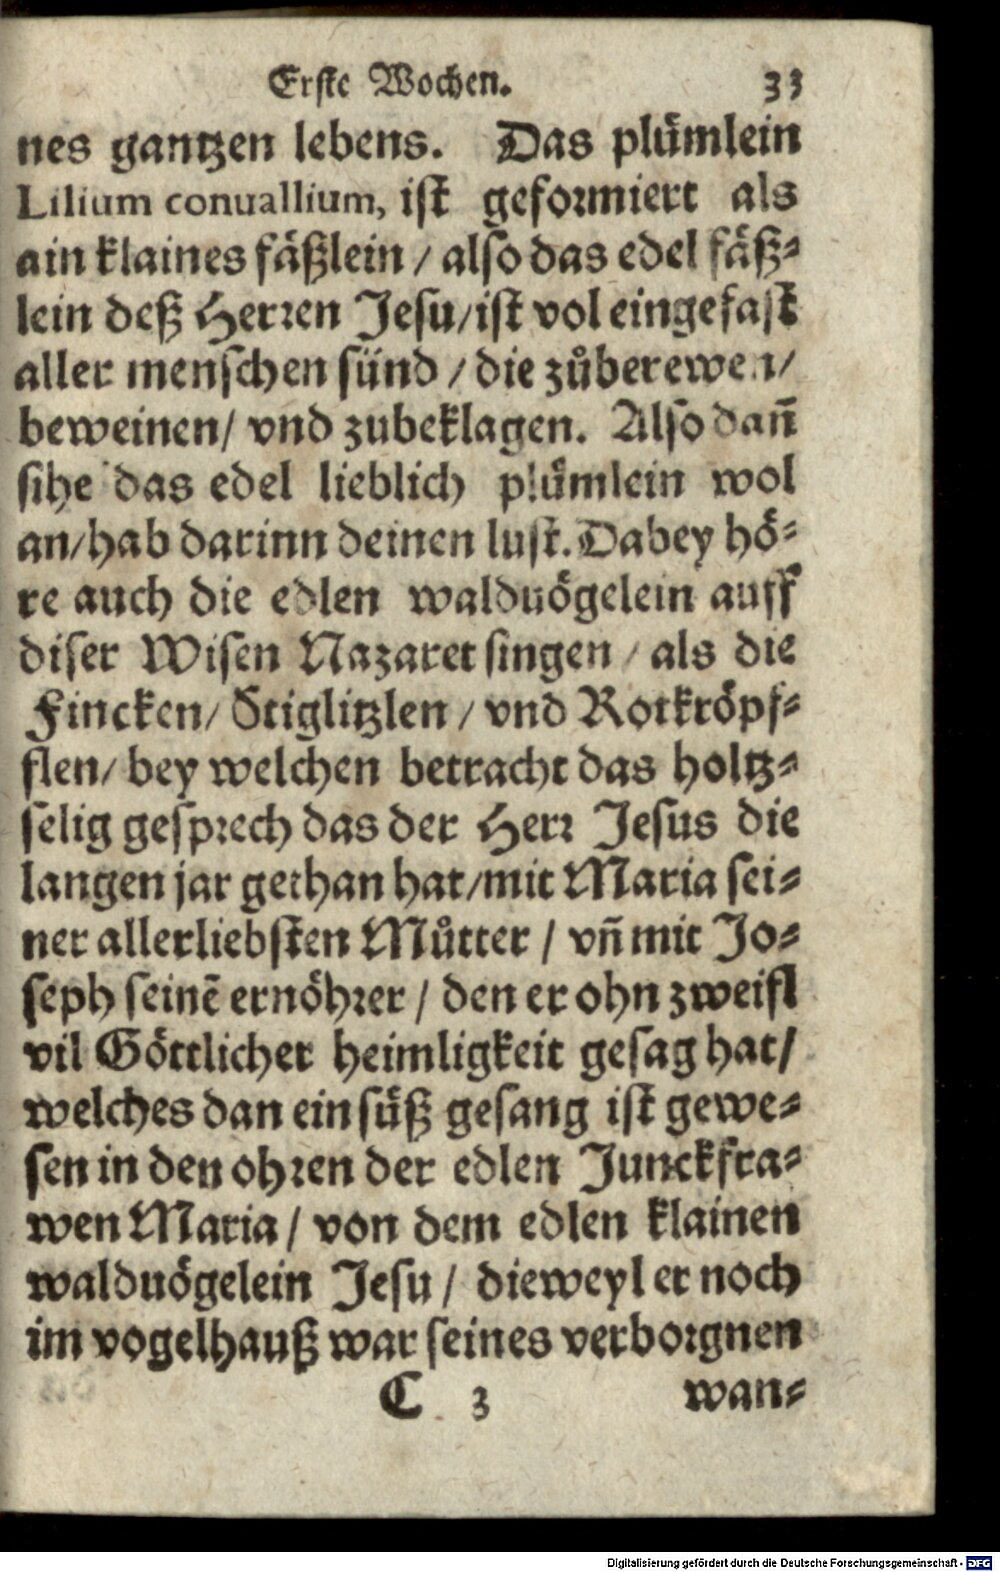 Erste Wochen. 33
nes gantzen lebens. Das plůmlein
Lilium conuallium, ist geformiert als
ain klaines fäßlein / also das edel fäß-
lein deß Herren Jesu/ist vol eingefast
aller menschen sünd / die zůberewen/
beweinen/ vnd zubeklagen. Also dañ
sihe das edel lieblich plůmlein wol
an/hab darinn deinen lust. Dabey hö-
re auch die edlen walduögelein auff
diser Wisen Nazaret singen / als die
Fincken/ Stiglitzlen / vnd Rotkröpf-
flen/ bey welchen betracht das holtz-
selig gesprech das der Herr Jesus die
langen jar gethan hat/mit Maria sei-
ner allerliebsten Můtter / vñ mit Jo-
seph seinē ernöhrer / den er ohn zweifl
vil Göttlicher heimligkeit gesag hat/
welches dan ein süß gesang ist gewe-
sen in den ohren der edlen Junckfra-
wen Maria / von dem edlen klainen
walduögelein Jesu / dieweyl er noch
im vogelhauß war seines verborgnen
C 3 wan-
Digitalisierung gefördert durch die Deutsche Forschungsgemeinschaft - DFG